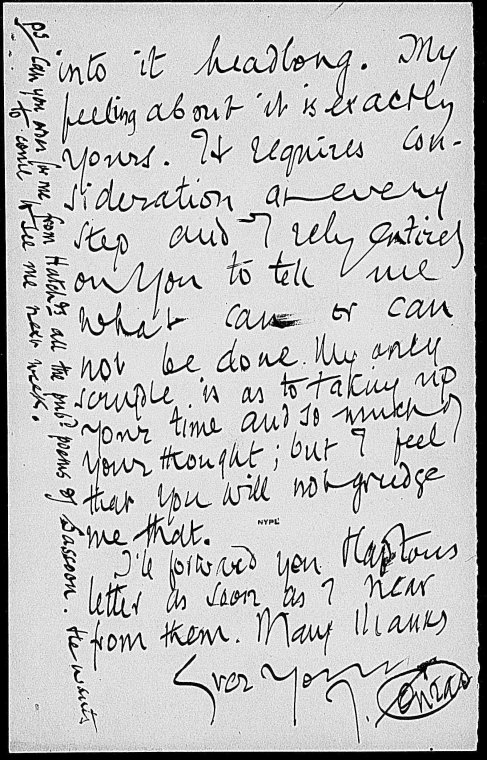 into it headlong. My
feeling about it is exactly
yours. It requires con-
sideration at every
step and I rely entirely
on you to tell me
what can or can
not be done. My only
scruple is as to taking up
your time and so much of
your thought; but I feel
that you will not grudge
me that.
NYPL
I'll forward you Haptons
letter as soon as I hear
from them. Many thanks
Ever Yours
J. Conrad
PS Can you order for me from Hatchds all the pubd poems of Sassoon. He wants
to come & see me next week.